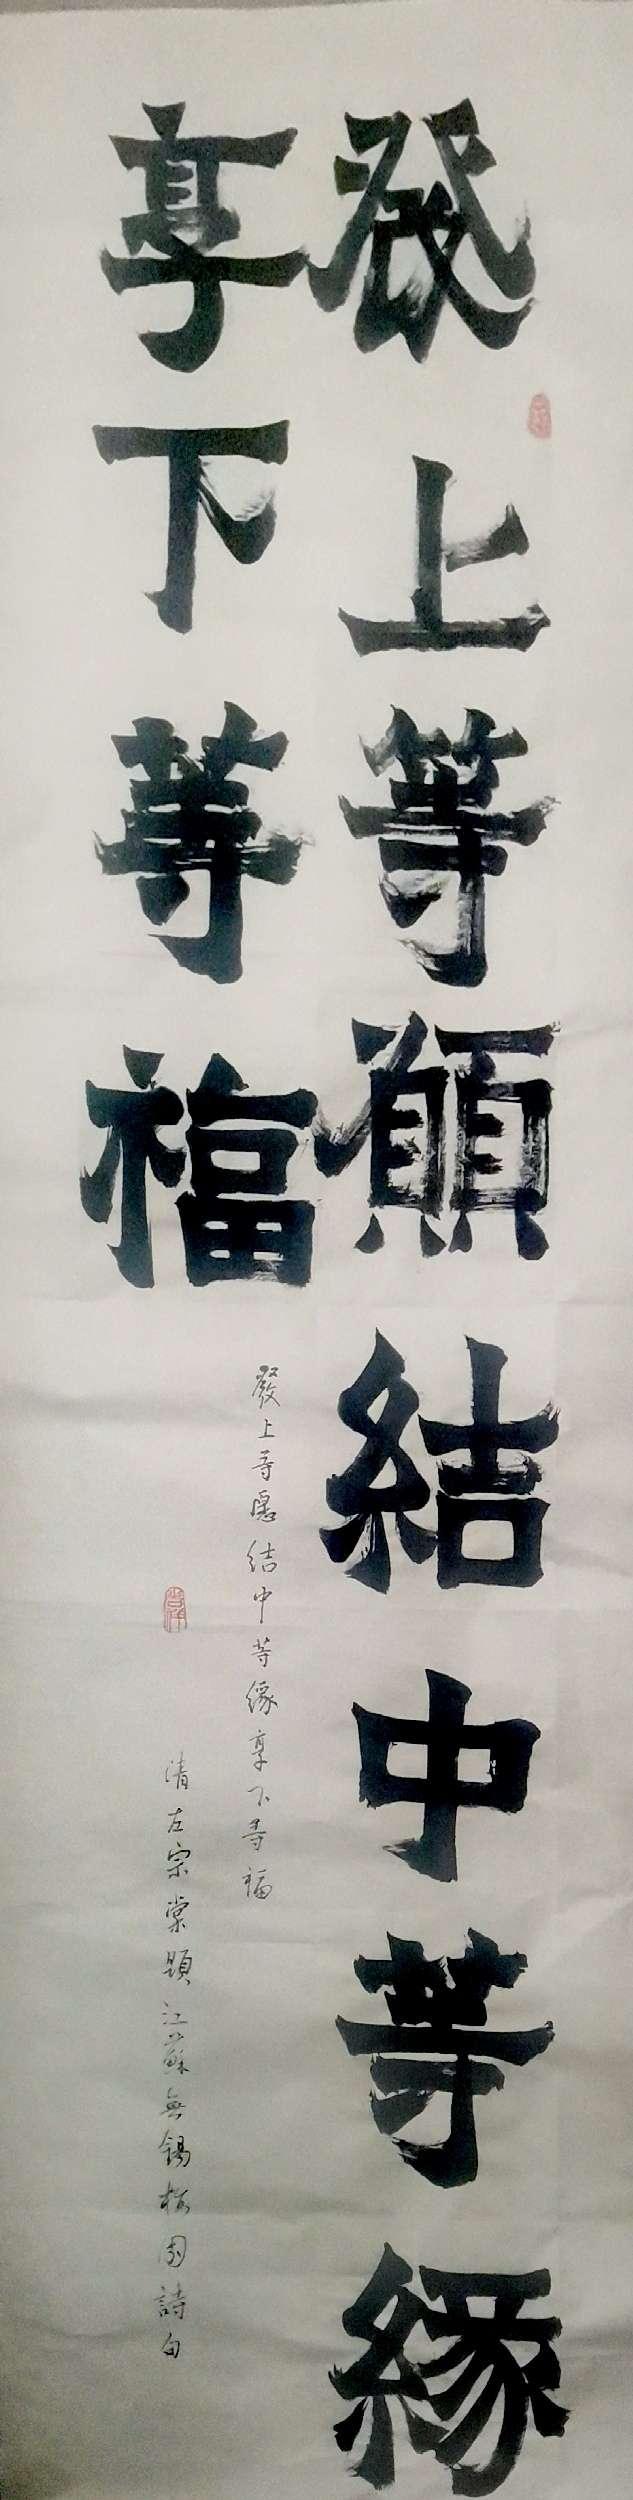 發上等願結中等緣
享下等福
發上等愿结中等缘享下等福
清左宗棠題江蘇無錫梅園詩句